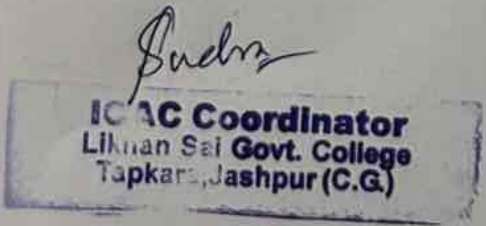 IC AC Coordinator
Likhan Sai Govt. College
Tapkara, Jashpur (C.G.)